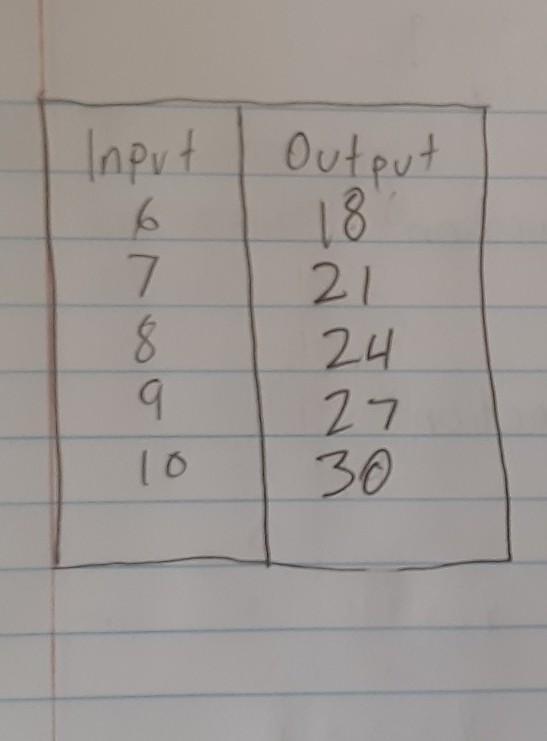 Input Output
6 18
7 21
8 24
9 27
10 30